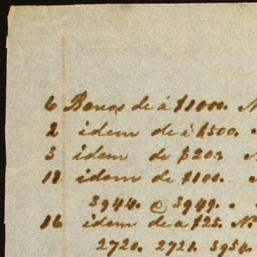 6 Bonos de á $1000. N
2 idem de á $500. N
3 idem de $203 N
18 idem de $100.
3944. @ 3949.
16 idem de á $25. N
2720. 2721. 3954.